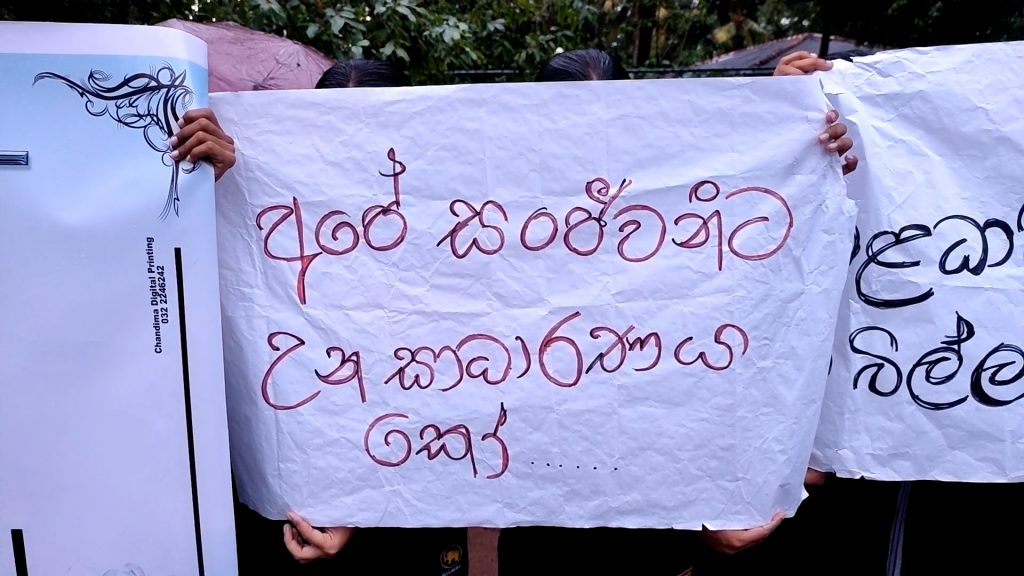 Chandima Digital Printing
032 2246242
අපේ සංජීවනිට
උන සාධාරණය
කෝ ......
ළධා
බිල්ල